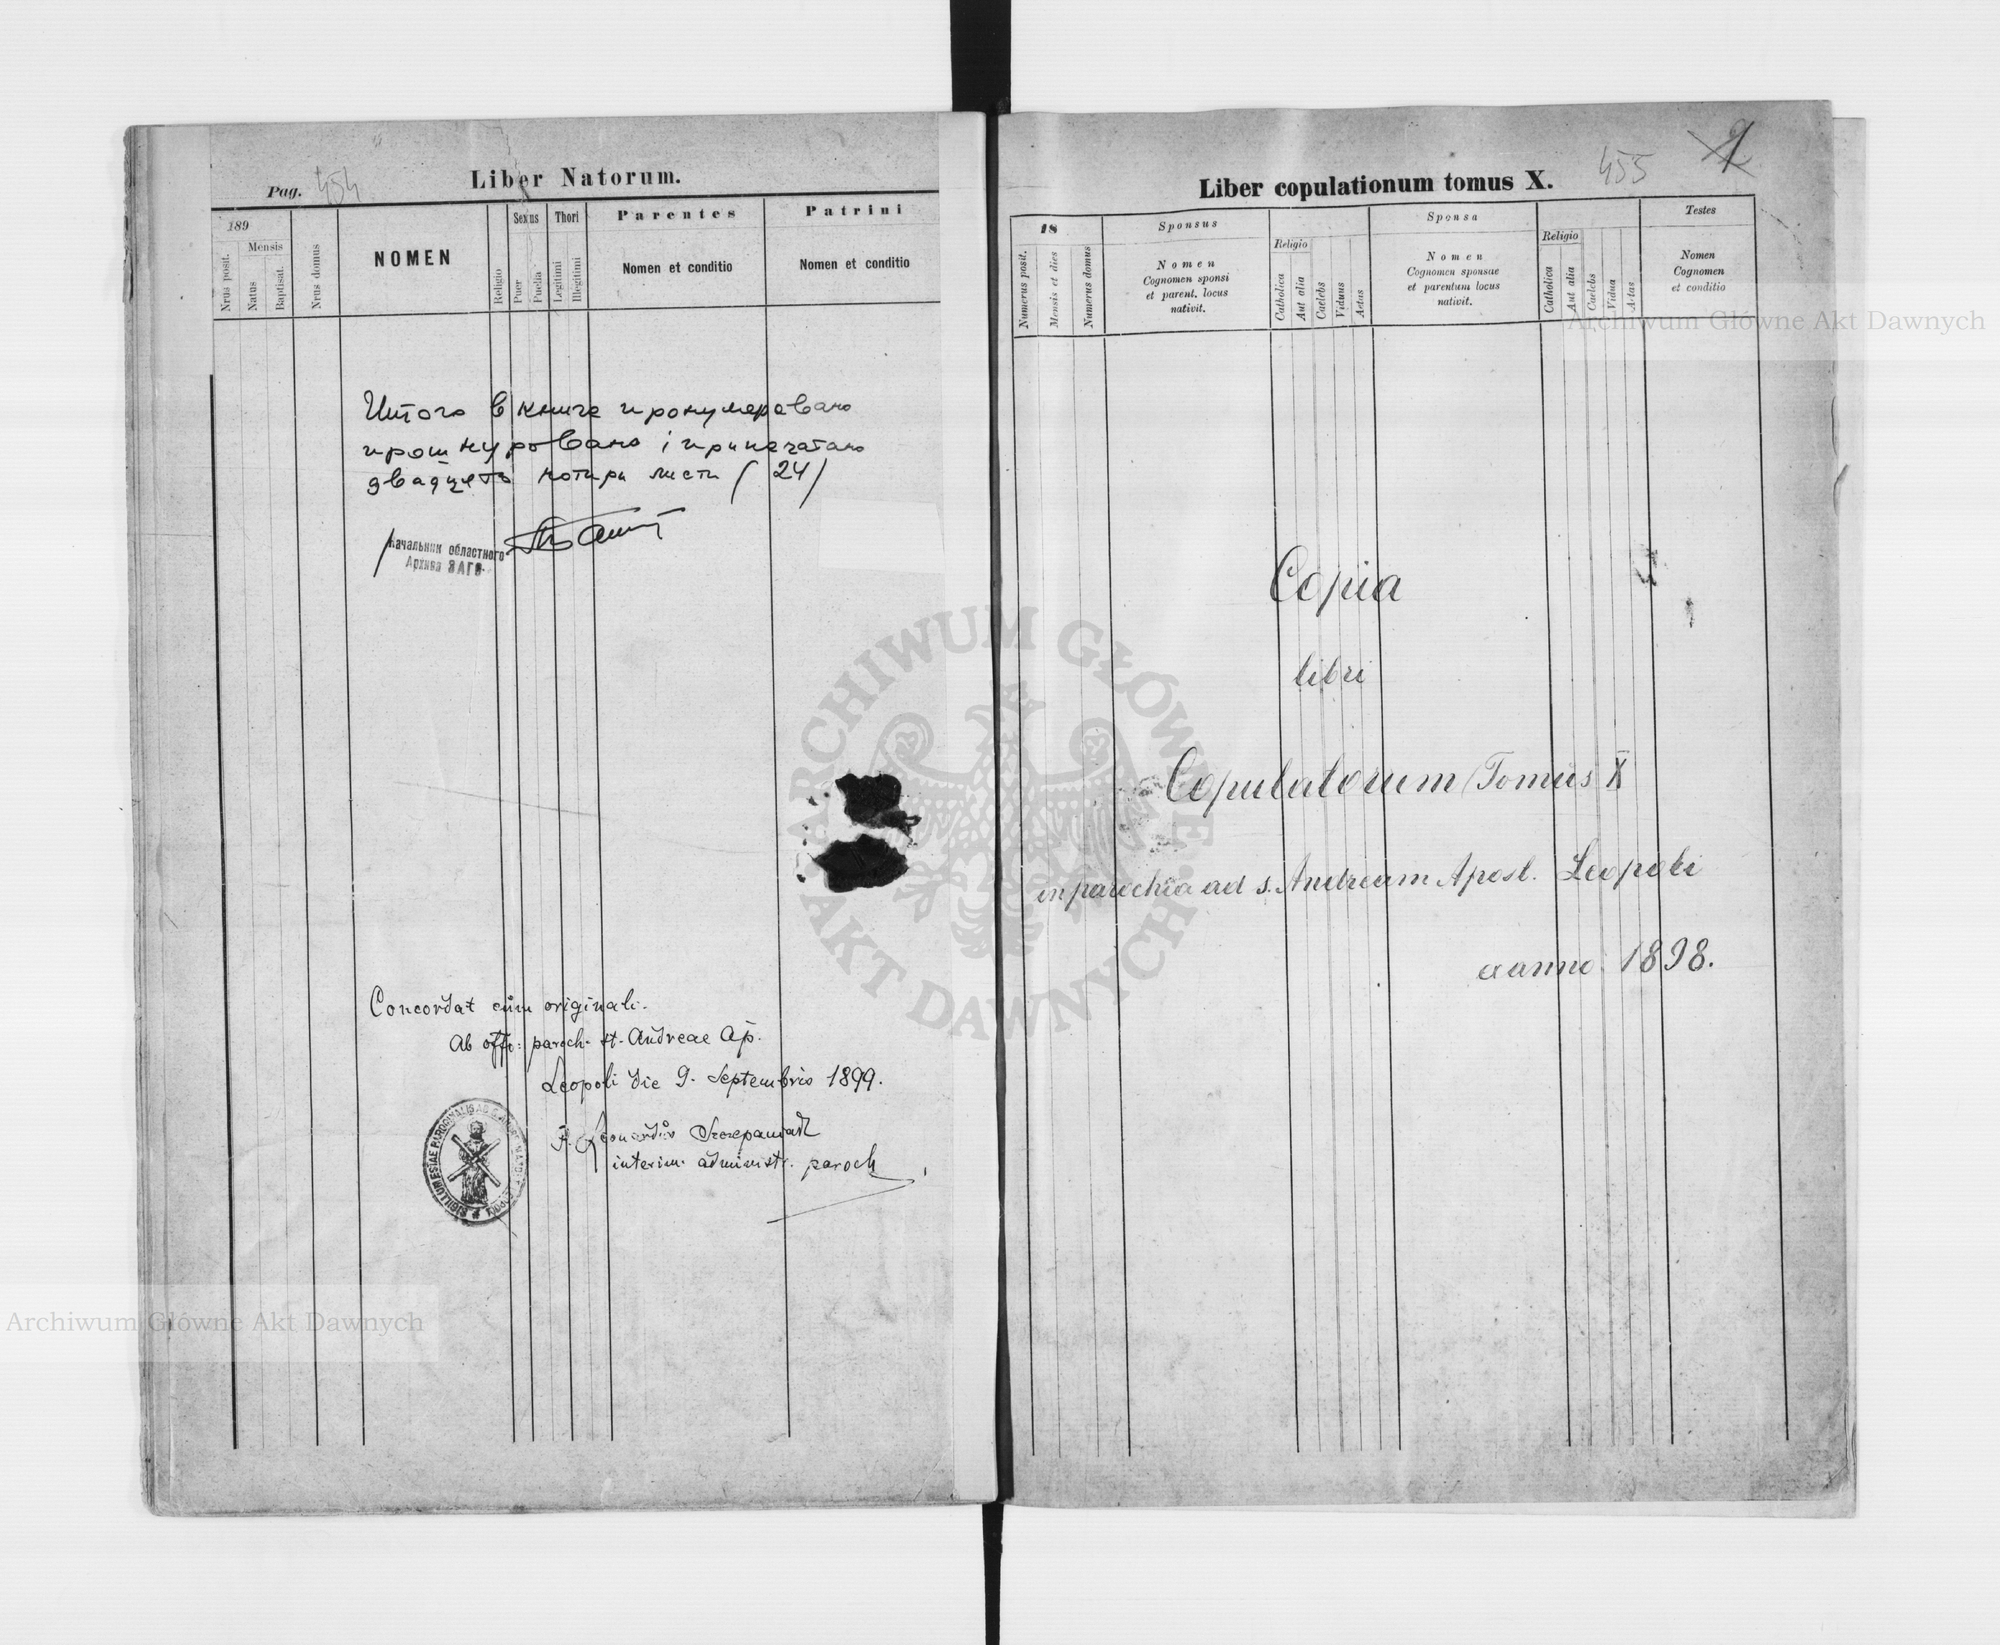 Liber Natorum.
Pag. 454
189
Mensis
Nrus posit.
Natus
Baptisat.
Nrus domus
NOMEN
Religio
Sexus
Puer
Puella
Thori
Legitimi
Illegitimi
Parentes
Nomen et conditio
Patrini
Nomen et conditio
Итого в книге пронумеровано
прошнуровано і припечатано
двадцять чотири листи (24)
Начальник областного
Архива ЗАГС
Concordat cum originali.
Ab offo: paroch. st. Andreae Ap.
Leopoli die 9. Septembris 1899.
Szczepaniak
interim. administr. paroch
SIGILLUM ECCLESIAE PAROCHIALIS AD S.
Liber copulationum tomus X.
455
1
18
Numerus posit.
Mensis et dies
Numerus domus
Sponsus
Nomen
Cognomen sponsi
et parent. locus
nativit.
Religio
Catholica
Aut alia
Caelebs
Viduus
Aetas
Sponsa
Nomen
Cognomen sponsae
et parentum locus
nativit.
Religio
Catholica
Aut alia
Caelebs
Vidua
Aetas
Testes
Nomen
Cognomen
et conditio
Copia
libri
Copulatorum Tomus X
in parochia ad s. Andream Apost. Leopoli
ex anno 1898.
Archiwum Główne Akt Dawnych
ARCHIWUM GŁÓWNE AKT DAWNYCH
Archiwum Główne Akt Dawnych